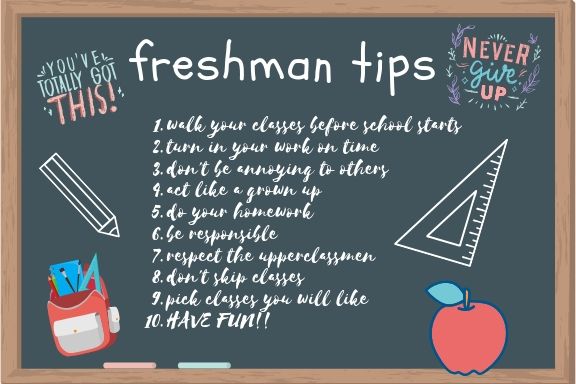 YOU'VE
TOTALLY GOT
THIS!
freshman tips
NEVER
give
UP
1. walk your classes before school starts
2. turn in your work on time
3. don't be annoying to others
4. act like a grown up
5. do your homework
6. be responsible
7. respect the upperclassmen
8. don't skip classes
9. pick classes you will like
10. HAVE FUN!!